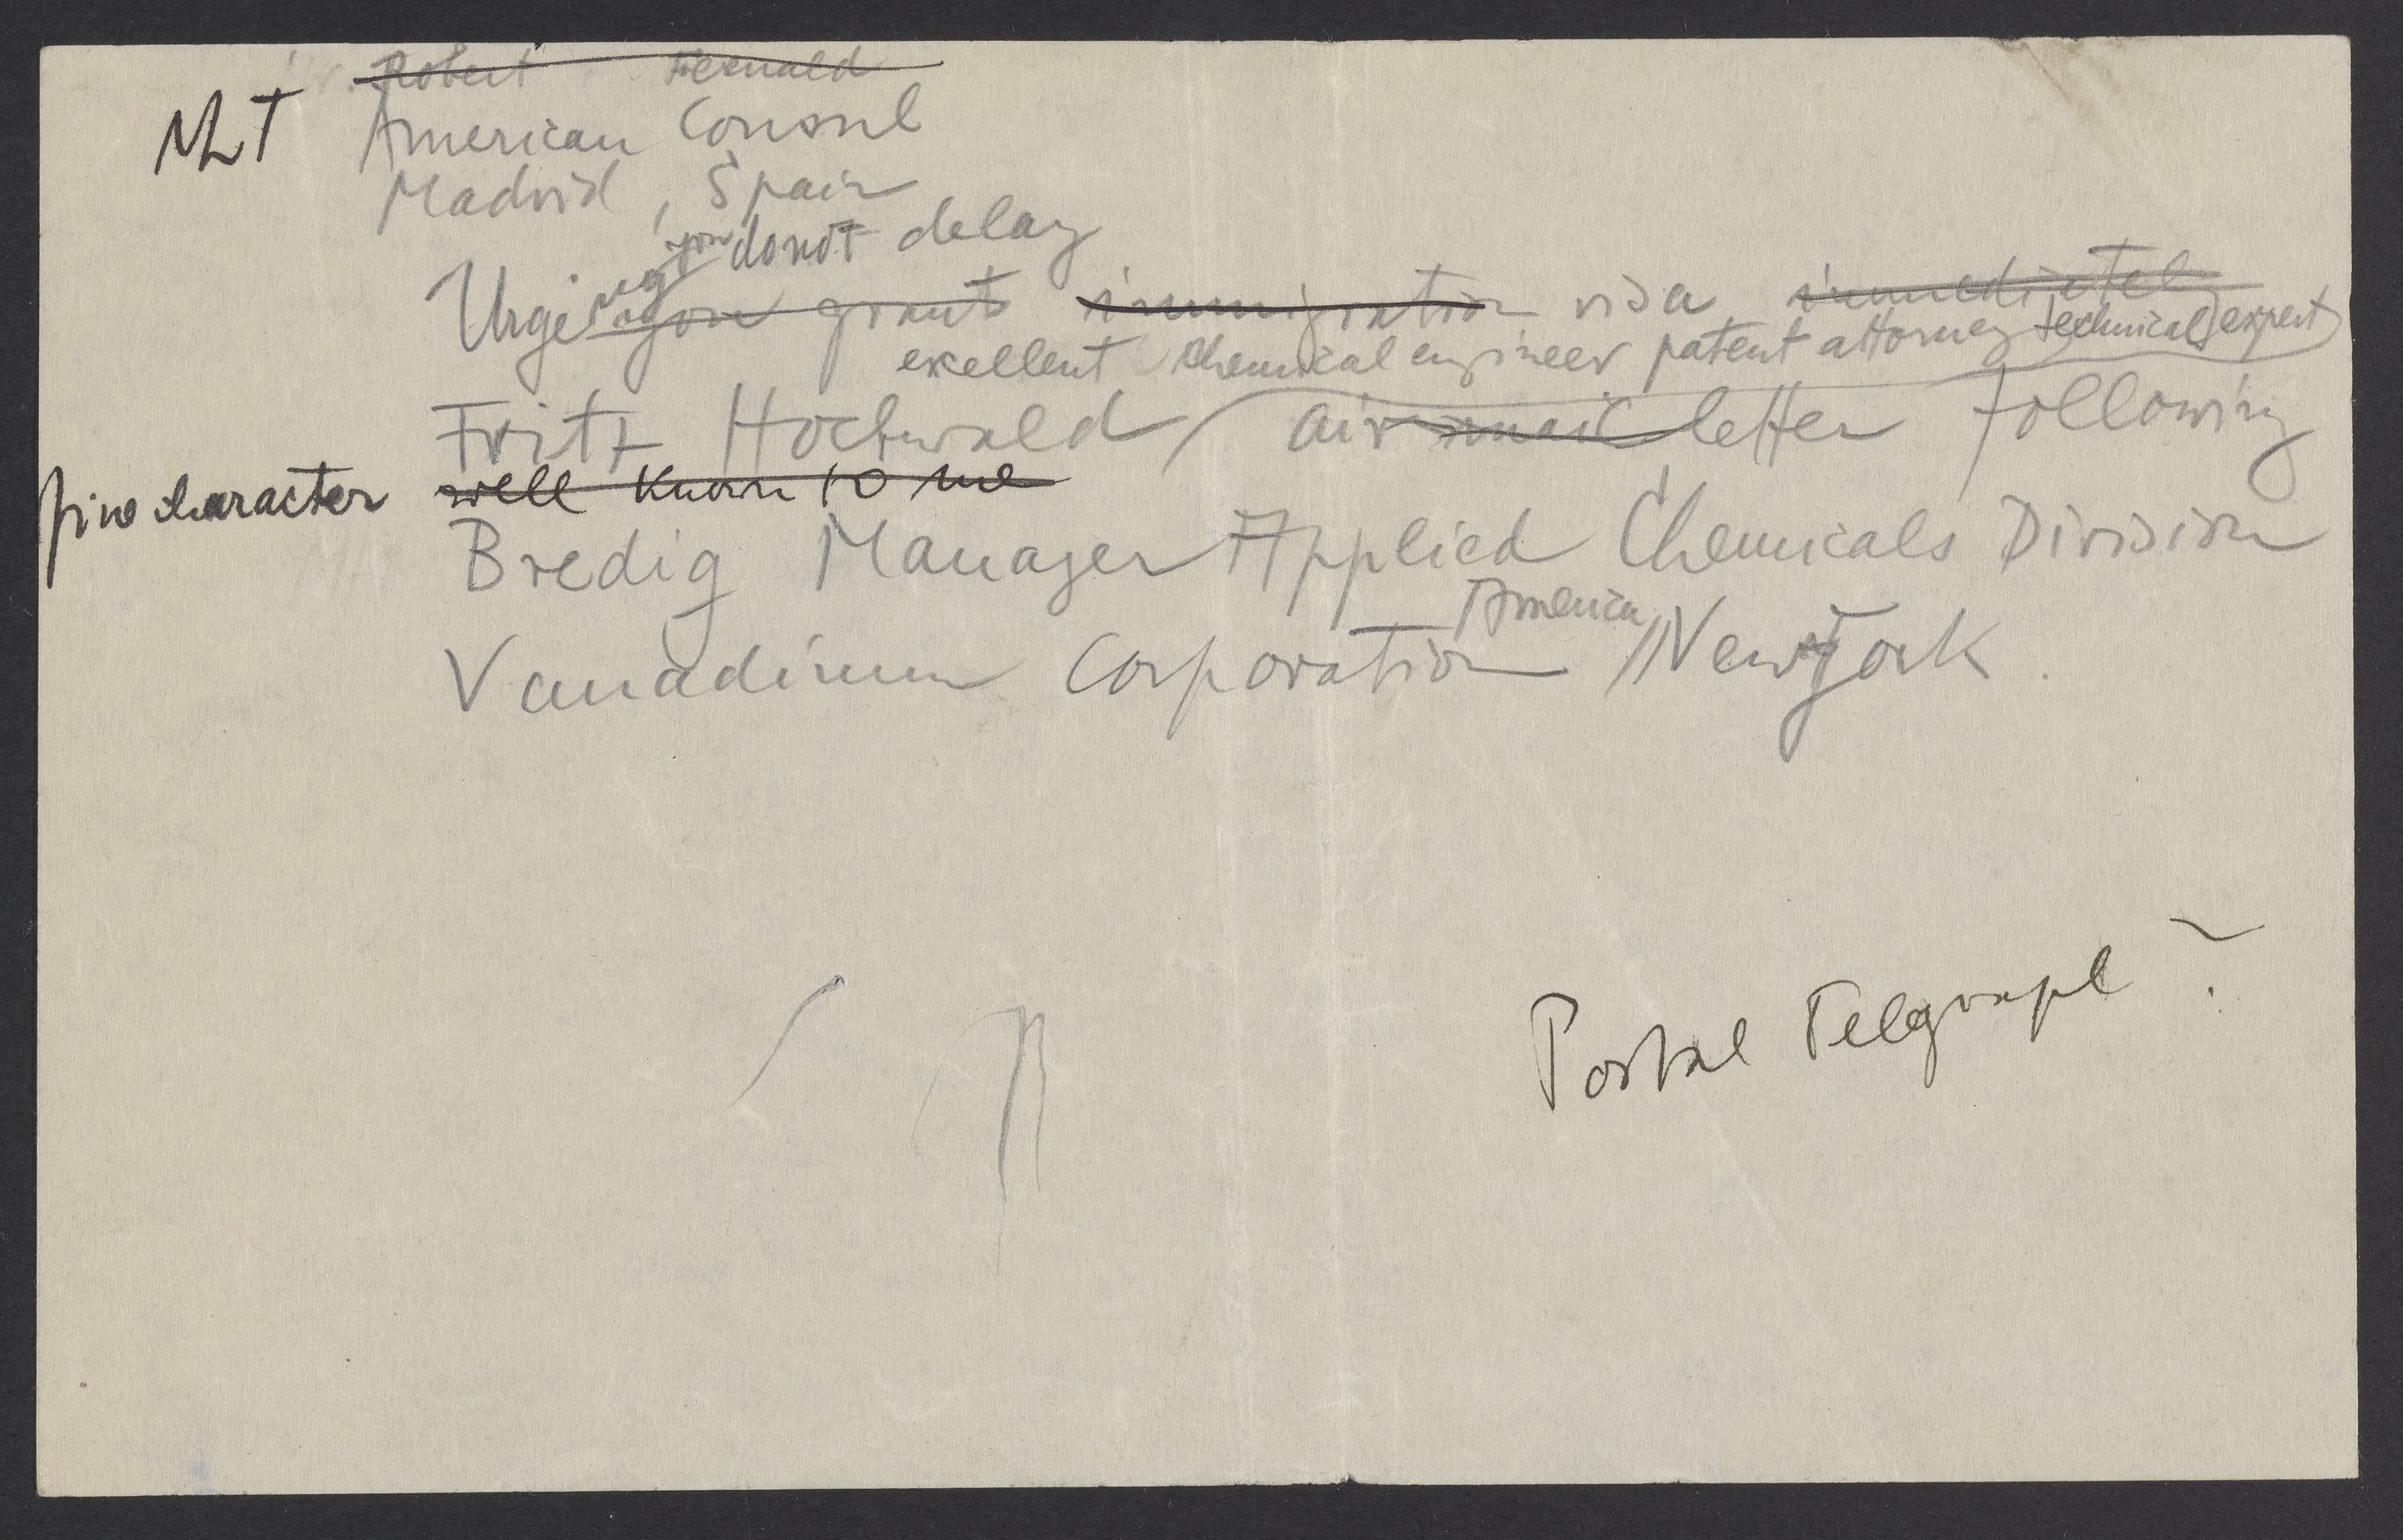 Robert Fernald
NLT American Consul
Madrid, Spain
you donot delay
Urgeing you grant immigration visa immediatel
exellent chemical engineer patent attorney technical expert
Fritz Hochwald airmail letter following
fine character well known to me
Bredig Manager Applied Chemicals Division
America
Vanadium Corporation New York.
Postal Telgraph ?